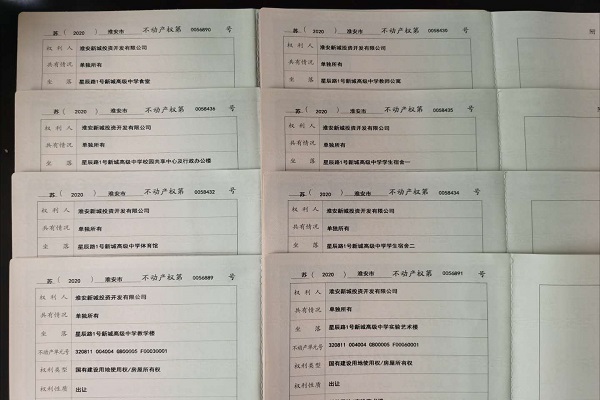 苏( 2020 ) 淮安市 不动产权第 0056890 号
权利人 淮安新城投资开发有限公司
共有情况 单独所有
坐落 星辰路1号新城高级中学食堂
苏( 2020 ) 淮安市 不动产权第 0058430 号
权利人 淮安新城投资开发有限公司
共有情况 单独所有
坐落 星辰路1号新城高级中学教师公寓
附
苏( 2020 ) 淮安市 不动产权第 0058436 号
权利人 淮安新城投资开发有限公司
共有情况 单独所有
坐落 星辰路1号新城高级中学校园共享中心及行政办公楼
苏( 2020 ) 淮安市 不动产权第 0058435 号
权利人 淮安新城投资开发有限公司
共有情况 单独所有
坐落 星辰路1号新城高级中学学生宿舍一
苏( 2020 ) 淮安市 不动产权第 0058432 号
权利人 淮安新城投资开发有限公司
共有情况 单独所有
坐落 星辰路1号新城高级中学体育馆
苏( 2020 ) 淮安市 不动产权第 0058434 号
权利人 淮安新城投资开发有限公司
共有情况 单独所有
坐落 星辰路1号新城高级中学学生宿舍二
苏( 2020 ) 淮安市 不动产权第 0056889 号
权利人 淮安新城投资开发有限公司
共有情况 单独所有
坐落 星辰路1号新城高级中学教学楼
不动产单元号 320811 004004 GB00005 F00030001
权利类型 国有建设用地使用权/房屋所有权
权利性质 出让
苏( 2020 ) 淮安市 不动产权第 0056891 号
权利人 淮安新城投资开发有限公司
共有情况 单独所有
坐落 星辰路1号新城高级中学实验艺术楼
不动产单元号 320811 004004 GB00005 F00060001
权利类型 国有建设用地使用权/房屋所有权
权利性质 出让